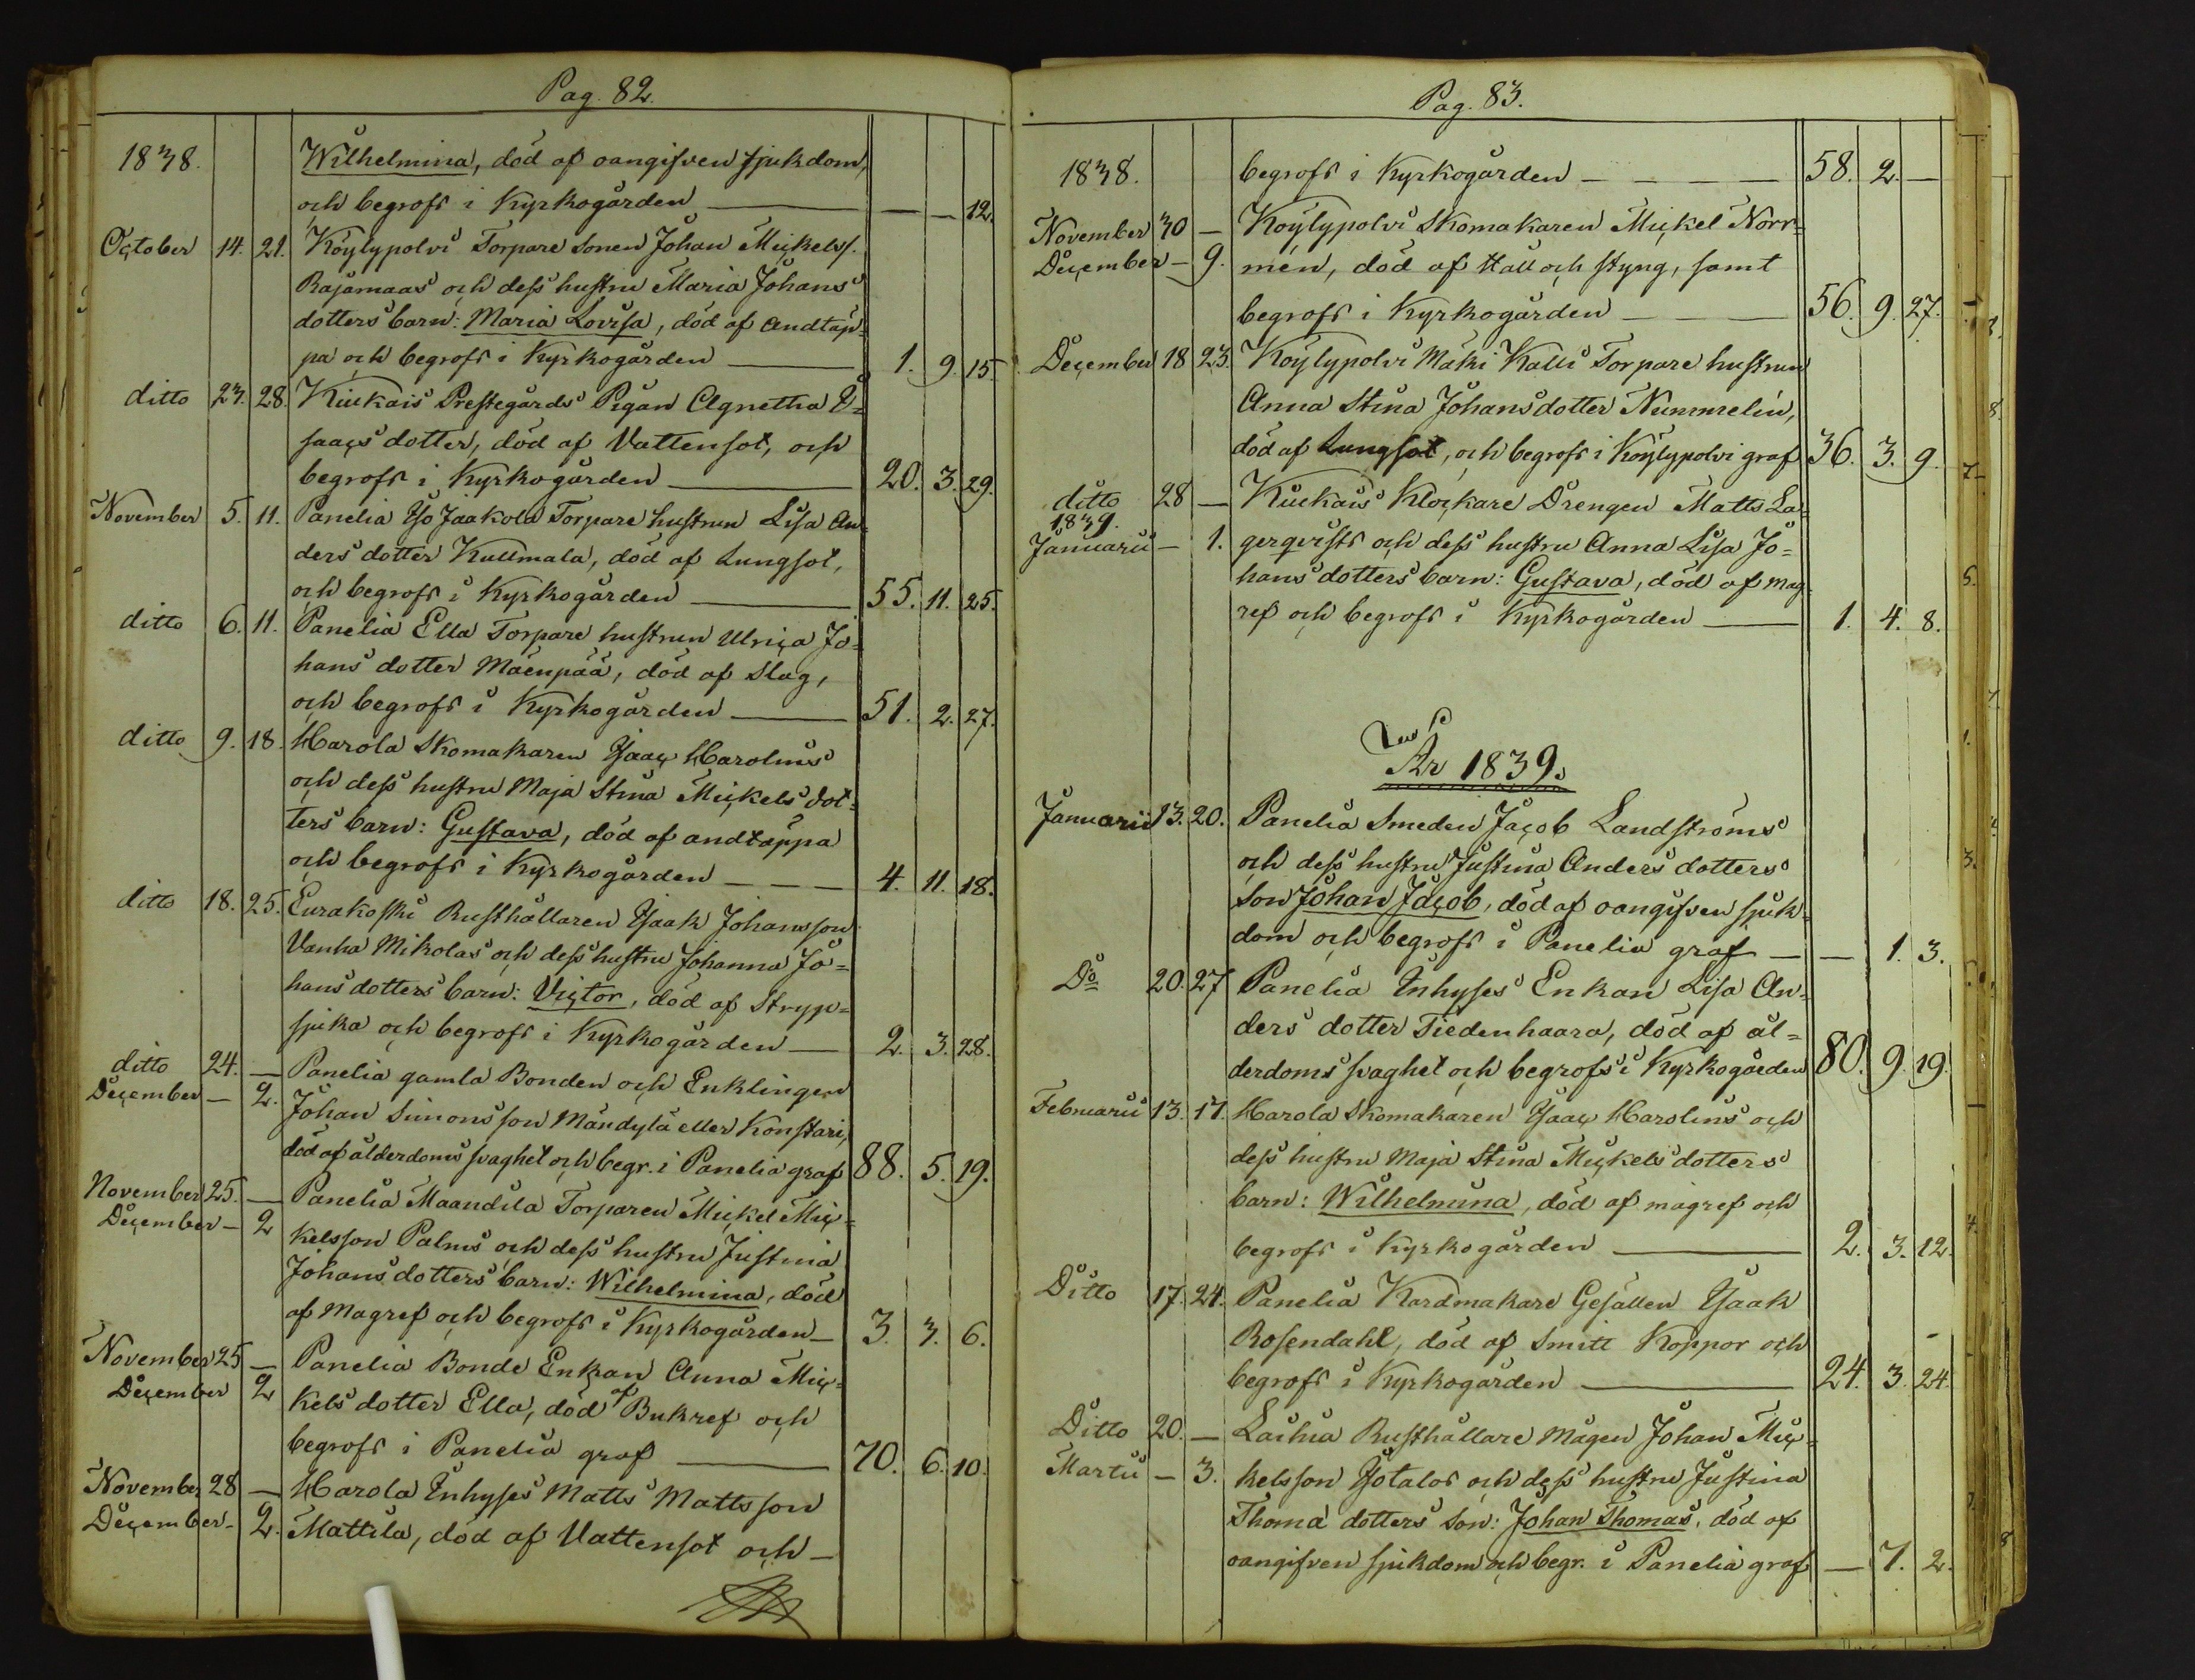 Pag. 82.
1838. Wilhelmina, död af oangifven sjukdom,
och begrofs i Kyrkogården — — — 12.
October 14. 21. Köylypolvi Torpare Sonen Johan Mickelss.
Rajamaas och dess hustru Maria Johans
dotters barn: Maria Lovisa, död af andtäp-
pa och begrofs i Kyrkogården — 1. 9. 15.
ditto 23. 28. Kiukais Prestegårds Pigan Agnetha I-
saacs dotter, död af Vattensot, och
begrofs i Kyrkogården — 20. 3. 29.
November 5. 11. Panelia Iso Jaakola Torpare hustrun Lisa An-
ders dotter Kullmala, död af Lungsot,
och begrofs i Kyrkogården — 55. 11. 25.
ditto 6. 11. Panelia Ella Torpare hustrun Ulrica Jo-
hans dotter Mäenpää, död af Slag,
och begrofs i Kyrkogården — 51. 2. 27.
ditto 9. 18. Harola Skomakaren Isaac Harolins
och dess hustru Maja Stina Mickels dot-
ters barn: Gustava, död af andtäppa
och begrofs i Kyrkogården — — — 4. 11. 18.
ditto 18. 25. Eurakoski Rusthållaren Isaak Johansson
Vanha Mikolas och dess hustru Johanna Jo=
hans dotters barn: Victor, död af Stryp=
sjuka och begrofs i Kyrkogården — 2. 3. 28.
ditto 24. — Panelia gamla Bonden och Enklingen
December — 2. Johan Simonsson Mändylä eller Konstari,
död af ålderdoms svaghet och begr. i Panelia graf 88. 5. 19.
November 25. — Panelia Maandila Torparen Mickel Mic=
December — 2 kelsson Palms och dess hustru Justina
Johans dotters barn: Wilhelmina, död
af Magref och begrofs i Kyrkogården — 3. 3. 6.
November 25 — Panelia Bonde Enkan Anna Mic=
December 2 kels dotter Ella, död af Bukref och
begrofs i Panelia graf — 70. 6. 10.
November 28 — Harola Inhyses Matts Mattsson
December - 2. Mattila, död af Vattensot och —
Pag. 83.
1838. begrofs i Kyrkogården — — — — 58. 2. —
November 30 — Köylypolvi Skomakaren Mickel Norr-
December — 9. mén, död af Håll och styng, samt
begrofs i Kyrkogården — — 56. 9. 27.
December 18 23. Köylypolvi Mäki Kalli Torpare hustrun
Anna Stina Johans dotter Nummelin,
död af Lungsot, och begrofs i Köylypolvi graf 36. 3. 9.
ditto 28 — Kiukais Klockare Drengen Matts La-
1839.
Januarii — 1. gerqvists och dess hustru Anna Lisa Jo=
hans dotters barn: Gustava, död af mag-
ref och begrofs i Kyrkogården — 1. 4. 8.
År 1839.
Januarii 13. 20. Panelia Smeden Jacob Landströms
och dess hustru Justina Anders dotters
Son Johan Jacob, död af oangifven sjuk-
dom och begrofs i Panelia graf — — 1. 3.
Do 20. 27 Panelia Inhyses Enkan Lisa An-
ders dotter Tiedenhaara, död af ål=
derdoms svaghet och begrofs i Kyrkogården 80. 9. 19.
Februarii 13. 17. Harola Skomakaren Isaac Harolins och
dess hustru Maja Stina Mickels dotters
barn: Wilhelmina, död af magref och
begrofs i Kyrkogården — 2. 3. 12.
Ditto 17. 24. Panelia Kardmakare Gesällen Isaak
Rosendahl, död af Smitt Koppor och
begrofs i Kyrkogården — 24. 3. 24.
Ditto 20. — Laihia Rusthållare Mågen Johan Mic-
Martii — 3. kelsson Isotalos och dess hustru Justina
Thomä dotters Son: Johan Thomas, död af
oangifven sjukdom och begr. i Panelia graf — 7. 2.